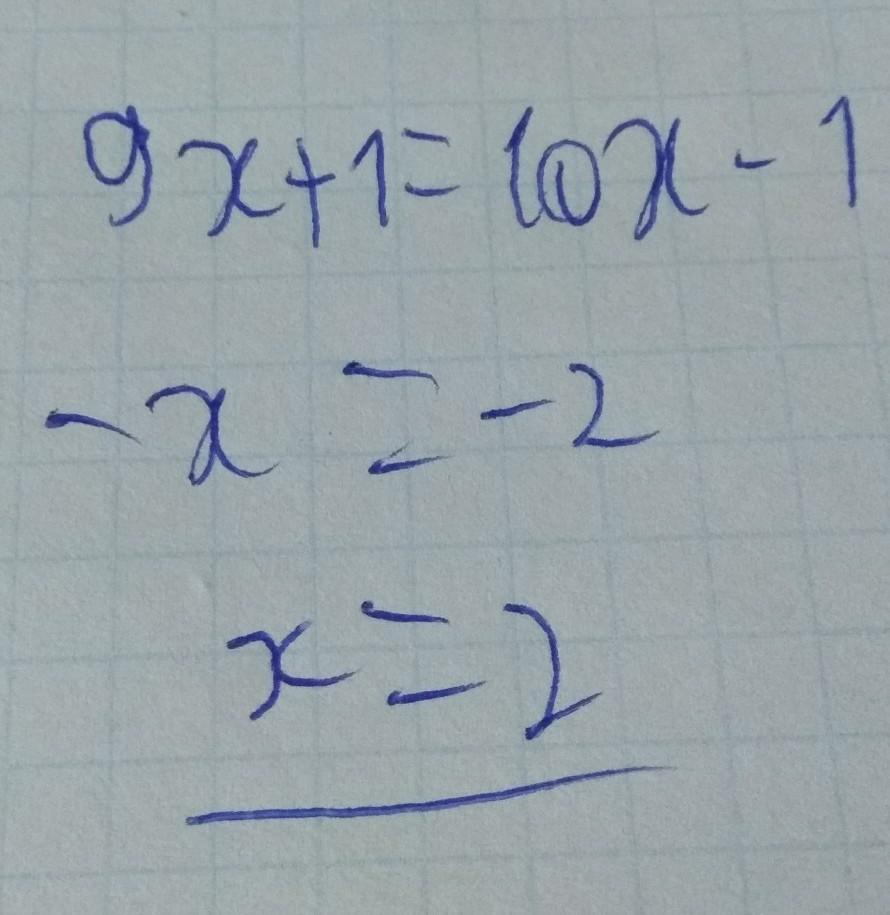 9x+1=10x-1
-x=-2
x=2